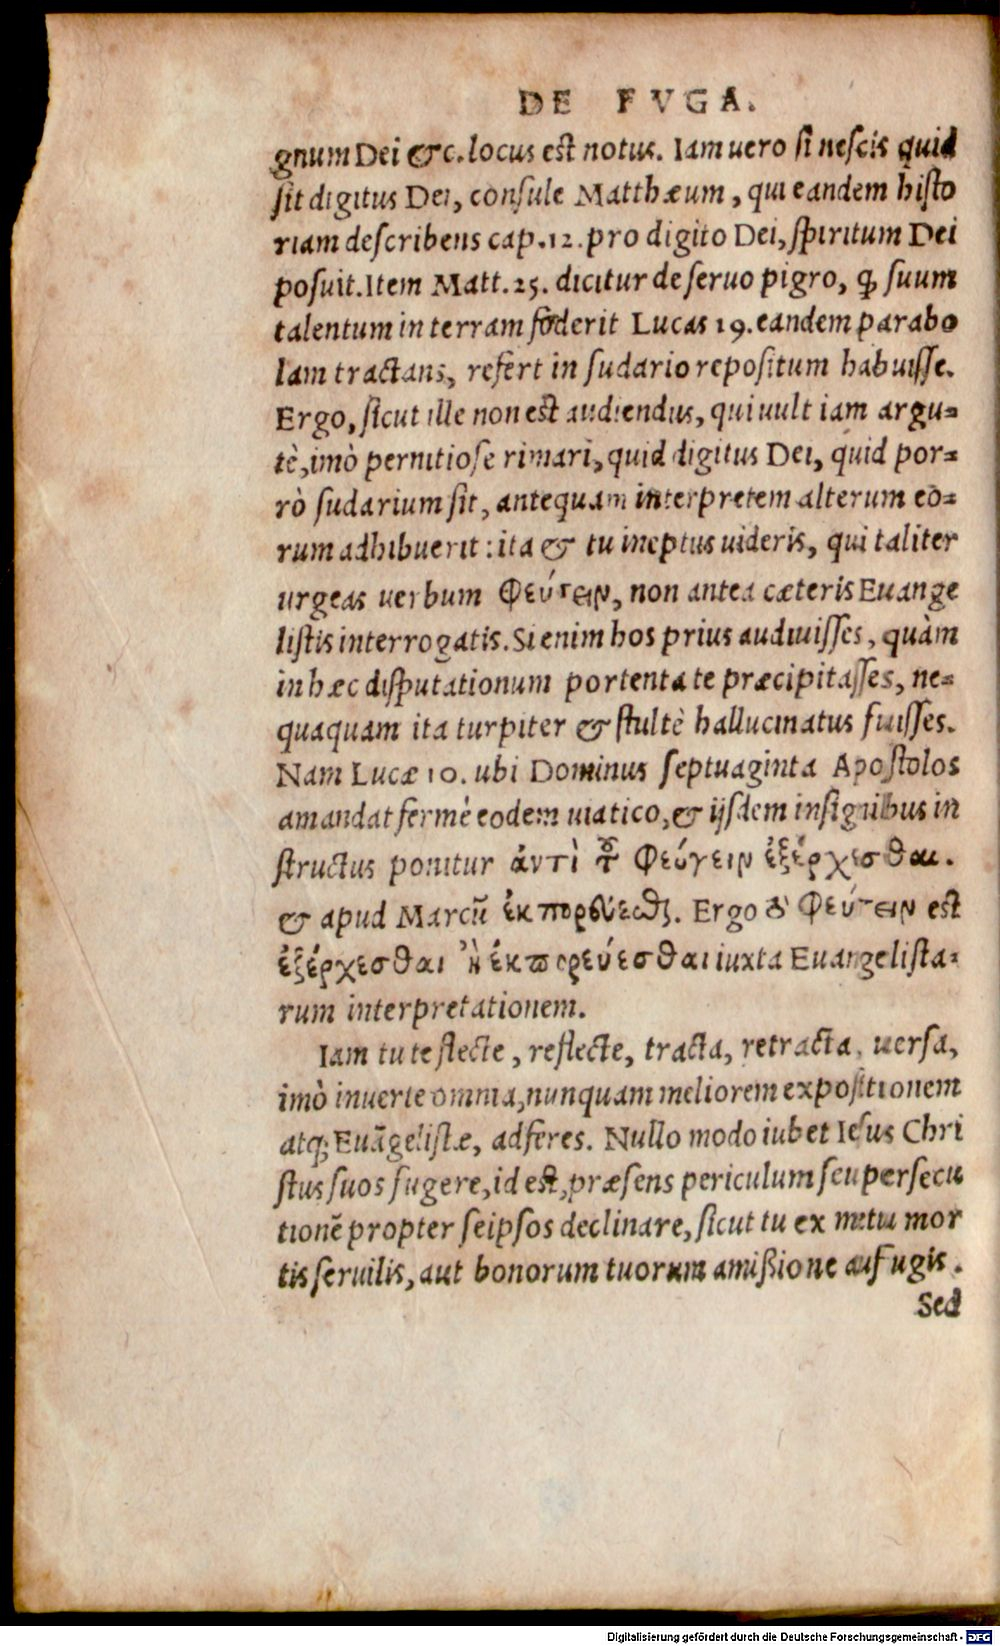 DE FVGA.
gnum Dei &c. locus est notus. Iam uero si nescis quid
sit digitus Dei, consule Matthæum, qui eandem histo
riam describens cap. 12. pro digito Dei, spiritum Dei
posuit. Item Matt. 25. dicitur de seruo pigro, ꝙ suum
talentum in terram foderit Lucas 19. eandem parabo
lam tractans, refert in sudario repositum habuisse.
Ergo, sicut ille non est audiendus, qui uult iam argu-
tè, imò pernitiose rimari, quid digitus Dei, quid por-
rò sudarium sit, antequam interpretem alterum eo-
rum adhibuerit: ita & tu ineptus uideris, qui taliter
urgeas uerbum Φεύγειν, non antea cæteris Euange
listis interrogatis. Si enim hos prius audiuisses, quàm
in hæc disputationum portenta te præcipitasses, ne-
quaquam ita turpiter & stultè hallucinatus fuisses.
Nam Lucæ 10. ubi Dominus septuaginta Apostolos
amandat fermè eodem uiatico, & ijsdem insignibus in
structus ponitur ἀντὶ τοῦ Φεύγειν ἐξέρχεσθαι.
& apud Marcũ ἐκπορεύεσθαι. Ergo τὸ Φεύγειν est
ἐξέρχεσθαι ἢ ἐκπορεύεσθαι iuxta Euangelista-
rum interpretationem.
Iam tu te flecte, reflecte, tracta, retracta, uersa,
imò inuerte omnia, nunquam meliorem expositionem
atq; Euãgelistæ, adferes. Nullo modo iubet Iesus Chri
stus suos fugere, id est, præsens periculum seu persecu
tionẽ propter seipsos declinare, sicut tu ex metu mor
tis seruilis, aut bonorum tuorum amißione aufugis.
Sed
Digitalisierung gefördert durch die Deutsche Forschungsgemeinschaft - DFG